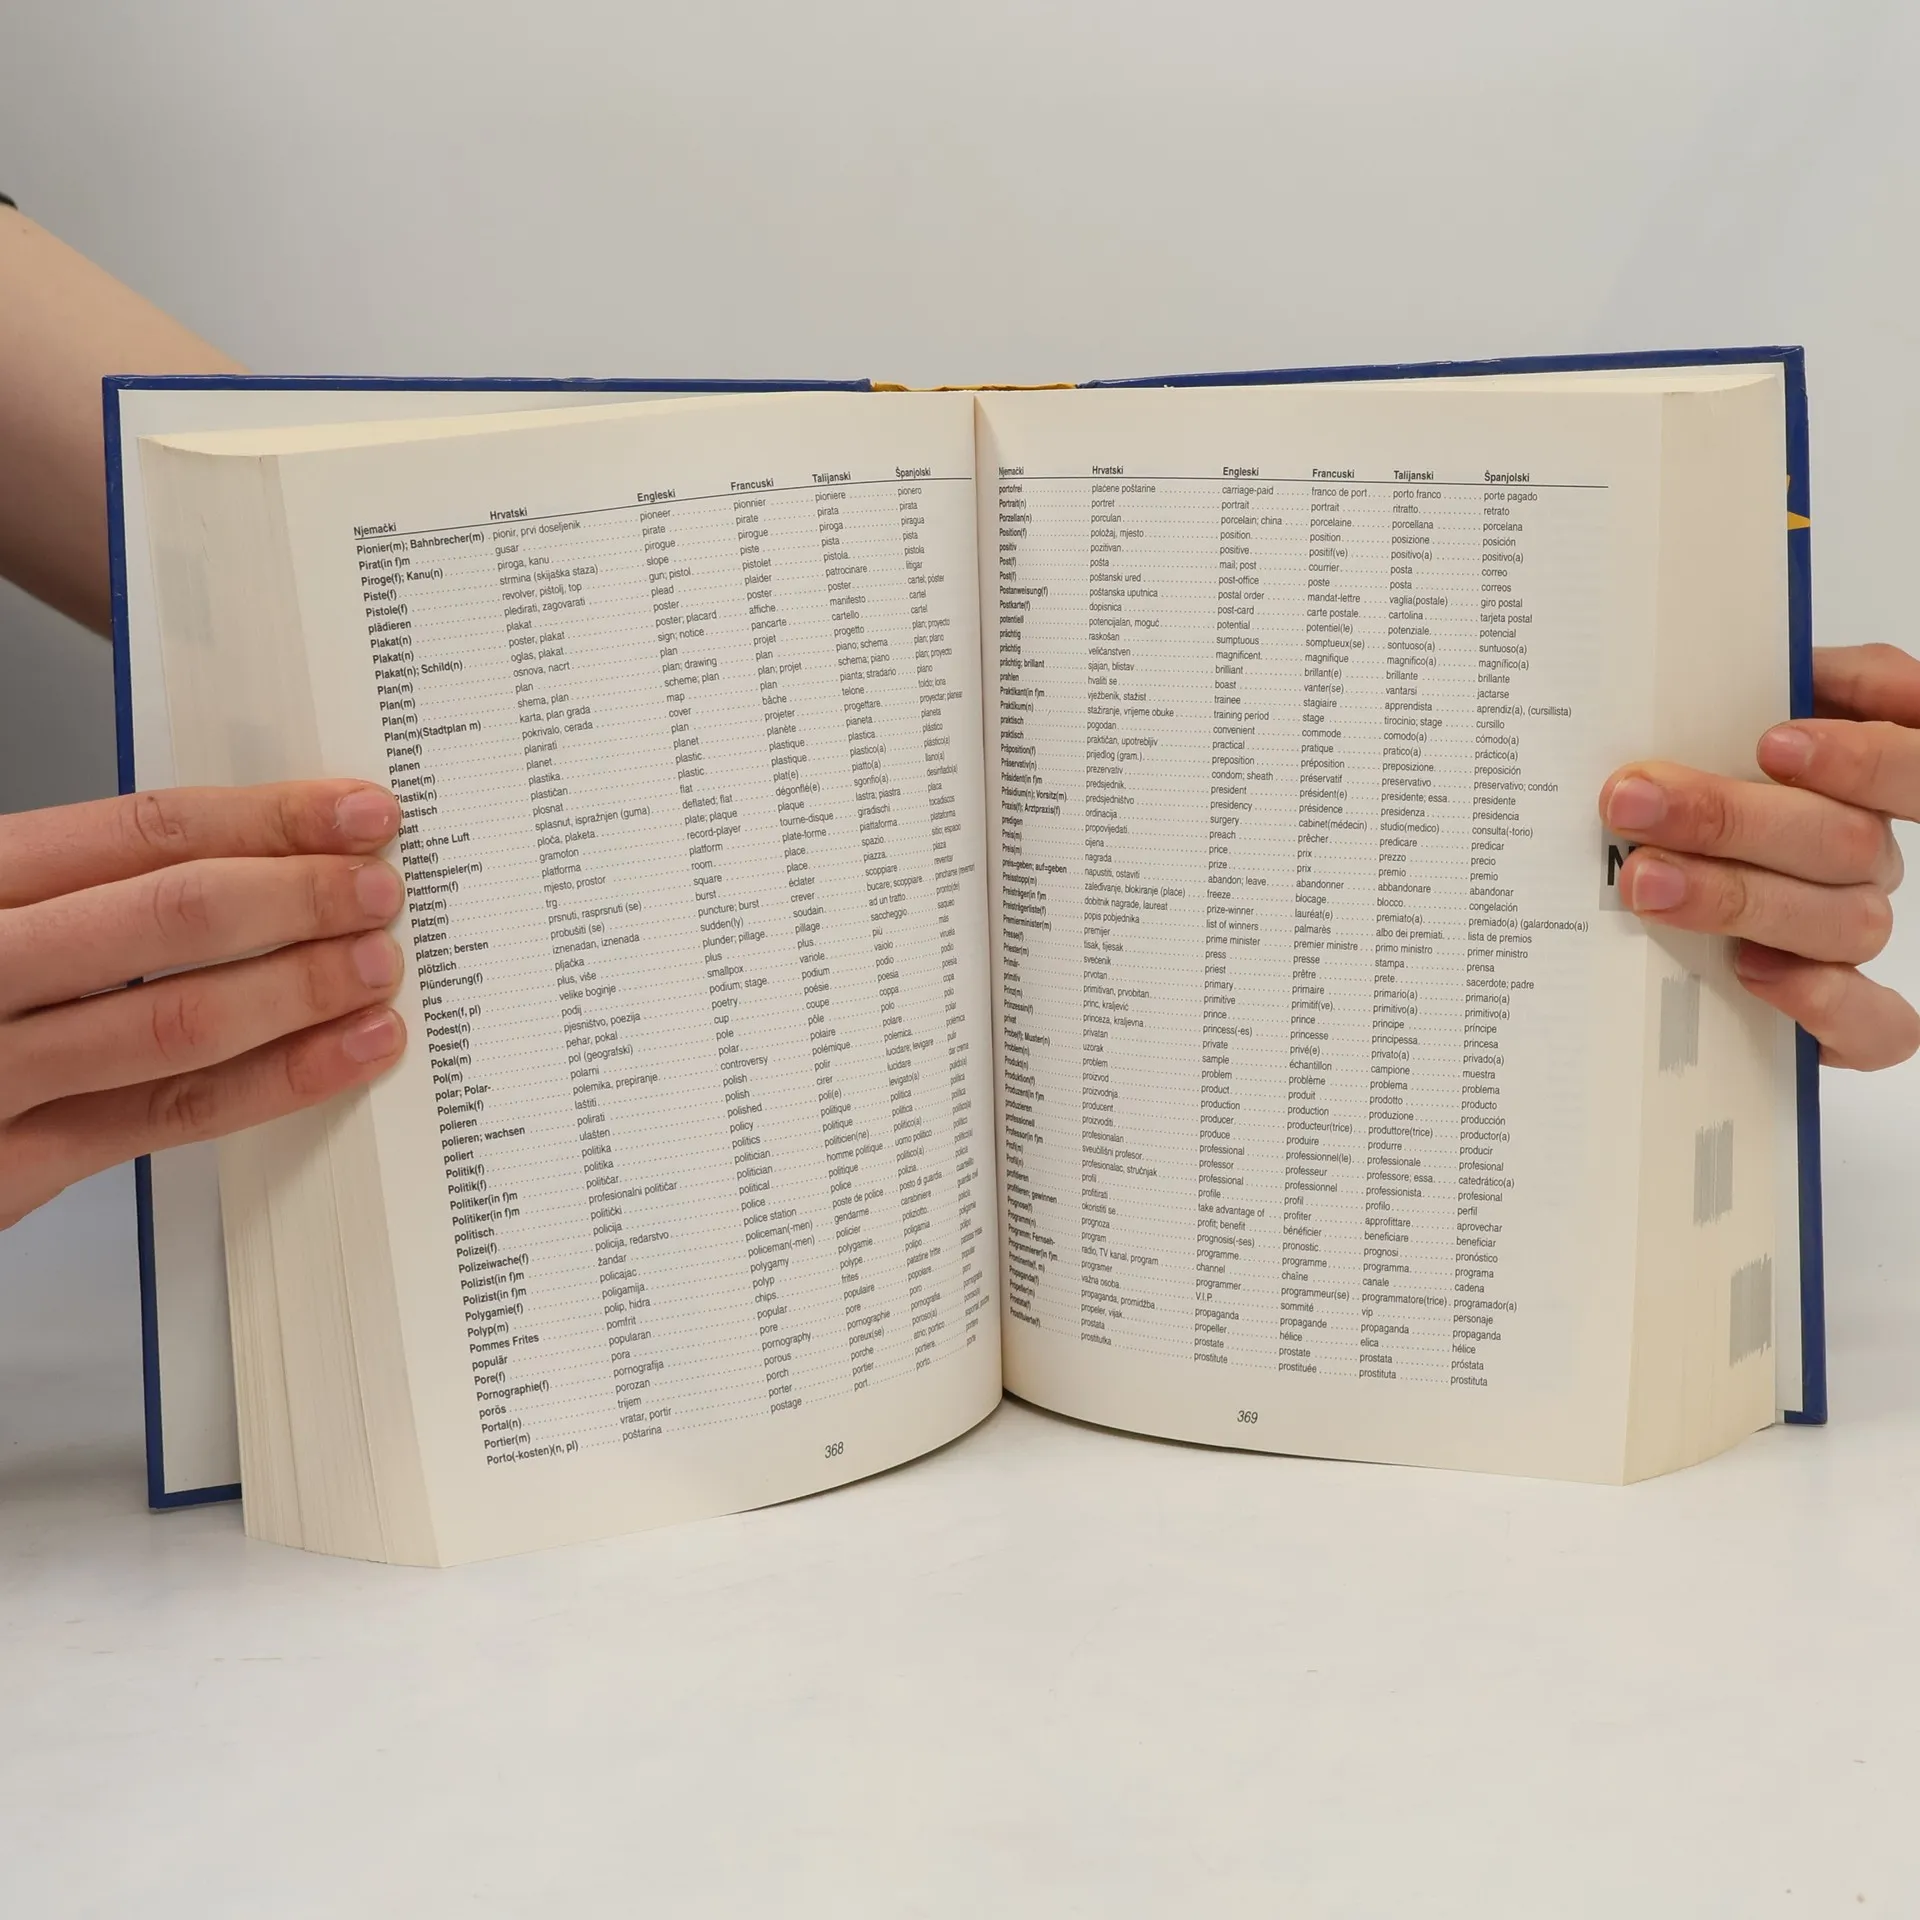 Njemački Hrvatski Engleski Francuski Talijanski Španjolski
Pionier(m); Bahnbrecher(m) pionir, prvi doseljenik pioneer pionnier pioniere pionero
Pirat(in f)m gusar pirate pirate pirata pirata
Piroge(f); Kanu(n) piroga, kanu pirogue pirogue piroga piragua
Piste(f) strmina (skijaška staza) slope piste pista pista
Pistole(f) revolver, pištolj, top gun; pistol pistolet pistola pistola
plädieren pledirati, zagovarati plead plaider patrocinare litigar
Plakat(n) plakat poster poster poster cartel; póster
Plakat(n) poster, plakat poster; placard affiche manifesto cartel
Plakat(n); Schild(n) oglas, plakat sign; notice pancarte cartello cartel
Plan(m) osnova, nacrt plan projet progetto plan; proyecto
Plan(m) plan plan; drawing plan piano; schema plan; plano
Plan(m) shema, plan scheme; plan plan; projet schema; piano plan; proyecto
Plan(m)(Stadtplan m) karta, plan grada map plan pianta; stradario plano
Plane(f) pokrivalo, cerada cover bâche telone toldo; lona
planen planirati plan projeter progettare proyectar; planear
Planet(m) planet planet planète pianeta planeta
Plastik(n) plastika plastic plastique plastica plástico
plastisch plastičan plastic plastique plastico(a) plástico(a)
platt plosnat flat plat(e) piatto(a) llano(a)
platt; ohne Luft splasnut, ispražnjen (guma) deflated; flat dégonflé(e) sgonfio(a) desinflado(a)
Platte(f) ploča, plaketa plate; plaque plaque lastra; piastra placa
Plattenspieler(m) gramofon record-player tourne-disque giradischi tocadiscos
Plattform(f) platforma platform plate-forme piattaforma plataforma
Platz(m) mjesto, prostor room place spazio sitio; espacio
Platz(m) trg square place piazza plaza
platzen prsnuti, rasprsnuti (se) burst éclater scoppiare reventar
platzen; bersten probušiti (se) puncture; burst crever bucare; scoppiare pincharse
plötzlich iznenadan, iznenada sudden(ly) soudain ad un tratto pronto(de)
Plünderung(f) pljačka plunder; pillage pillage saccheggio saqueo
plus plus, više plus plus più más
Pocken(f, pl) velike boginje smallpox variole vaiolo viruela
Podest(n) podij podium; stage podium podio podio
Poesie(f) pjesništvo, poezija poetry poésie poesia poesía
Pokal(m) pehar, pokal cup coupe coppa copa
Pol(m) pol (geografski) pole pôle polo polo
polar; Polar- polarni polar polaire polare polar
Polemik(f) polemika, prepiranje controversy polémique polemica polémica
polieren laštiti polish polir lucidare; levigare pulir
polieren; wachsen polirati polish cirer lucidare dar cera
poliert ulašten polished poli(e) levigato(a) pulido(a)
Politik(f) politika policy politique politica política
Politik(f) politika politics politique politica política
Politiker(in f)m političar politician politicien(ne) politico(a) político(a)
Politiker(in f)m profesionalni političar politician homme politique uomo politico político
politisch politički political politique politico(a) político(a)
Polizei(f) policija police police polizia policía
Polizeiwache(f) policija, redarstvo police station poste de police posto di guardia cuartelillo
Polizist(in f)m žandar policeman(-men) gendarme carabiniere guardia civil
Polizist(in f)m policajac policeman(-men) policier poliziotto policía
Polygamie(f) poligamija polygamy polygamie poligamia poligamia
Polyp(m) polip, hidra polyp polype polipo pólipo
Pommes Frites pomfrit chips frites patatine fritte patatas fritas
populär popularan popular populaire popolare popular
Pore(f) pora pore pore poro poro
Pornographie(f) pornografija pornography pornographie pornografia pornografía
porös porozan porous poreux(se) poroso(a) poroso(a)
Portal(n) trijem porch porche atrio; portico soportal; pórtico
Portier(m) vratar, portir porter portier portiere portero
Porto(-kosten)(n, pl) poštarina postage port porto porte
368
Njemački Hrvatski Engleski Francuski Talijanski Španjolski
portofrei plaćene poštarine carriage-paid franco de port porto franco porte pagado
Portrait(n) portret portrait portrait ritratto retrato
Porzellan(n) porculan porcelain; china porcelaine porcellana porcelana
Position(f) položaj, mjesto position position posizione posición
positiv pozitivan positive positif(ve) positivo(a) positivo(a)
Post(f) pošta mail; post courrier posta correo
Post(f) poštanski ured post-office poste posta correos
Postanweisung(f) poštanska uputnica postal order mandat-lettre vaglia(postale) giro postal
Postkarte(f) dopisnica post-card carte postale cartolina tarjeta postal
potentiell potencijalan, moguć potential potentiel(le) potenziale potencial
prächtig raskošan sumptuous somptueux(se) sontuoso(a) suntuoso(a)
prächtig veličanstven magnificent magnifique magnifico(a) magnífico(a)
prächtig; brillant sjajan, blistav brilliant brillant(e) brillante brillante
prahlen hvaliti se boast vanter(se) vantarsi jactarse
Praktikant(in f)m vježbenik, stažist trainee stagiaire apprendista aprendiz(a), (cursillista)
Praktikum(n) stažiranje, vrijeme obuke training period stage tirocinio; stage cursillo
praktisch pogodan convenient commode comodo(a) cómodo(a)
praktisch praktičan, upotrebljiv practical pratique pratico(a) práctico(a)
Präposition(f) prijedlog (gram.) preposition préposition preposizione preposición
Präservativ(n) prezervativ condom; sheath préservatif preservativo preservativo; condón
Präsident(in f)m predsjednik president président(e) presidente; essa presidente
Präsidium(n); Vorsitz(m) predsjedništvo presidency présidence presidenza presidencia
Praxis(f); Arztpraxis(f) ordinacija surgery cabinet(médecin) studio(medico) consulta(-torio)
predigen propovijedati preach prêcher predicare predicar
Preis(m) cijena price prix prezzo precio
Preis(m) nagrada prize prix premio premio
preis=geben; auf=geben napustiti, ostaviti abandon; leave abandonner abbandonare abandonar
Preisstopp(m) zaleđivanje, blokiranje (plaće) freeze blocage blocco congelación
Preisträger(in f)m dobitnik nagrade, laureat prize-winner lauréat(e) premiato(a) premiado(a) (galardonado(a))
Preisträgerliste(f) popis pobjednika list of winners palmarès albo dei premiati lista de premios
Premierminister(m) premijer prime minister premier ministre primo ministro primer ministro
Presse(f) tisak, tijesak press presse stampa prensa
Priester(m) svećenik priest prêtre prete sacerdote; padre
Primär- prvotan primary primaire primario(a) primario(a)
primitiv primitivan, prvobitan primitive primitif(ve) primitivo(a) primitivo(a)
Prinz(m) princ, kraljević prince prince principe príncipe
Prinzessin(f) princeza, kraljevna princess(-es) princesse principessa princesa
privat privatan private privé(e) privato(a) privado(a)
Probe(f); Muster(n) uzorak sample échantillon campione muestra
Problem(n) problem problem problème problema problema
Produkt(n) proizvod product produit prodotto producto
Produktion(f) proizvodnja production production produzione producción
Produzent(in f)m producent producer producteur(trice) produttore(trice) productor(a)
produzieren proizvoditi produce produire produrre producir
professionell profesionalan professional professionnel(le) professionale profesional
Professor(in f)m sveučilišni profesor professor professeur professore; essa catedrático(a)
Profi(m) profesionalac, stručnjak professional professionnel professionista profesional
Profil(n) profil profile profil profilo perfil
profitieren profitirati take advantage of profiter approfittare aprovechar
profitieren; gewinnen okoristiti se profit; benefit bénéficier beneficiare beneficiar
Prognose(f) prognoza prognosis(-ses) pronostic prognosi pronóstico
Programm(n) program programme programme programma programa
Programm; Fernseh- radio, TV kanal, program channel chaîne canale cadena
Programmierer(in f)m programer programmer programmeur(se) programmatore(trice) programador(a)
Prominente(f, m) važna osoba V.I.P. sommité vip personaje
Propaganda(f) propaganda, promidžba propaganda propagande propaganda propaganda
Propeller(m) propeler, vijak propeller hélice elica hélice
Prostata(f) prostata prostate prostate prostata próstata
Prostituierte(f) prostitutka prostitute prostituée prostituta prostituta
369